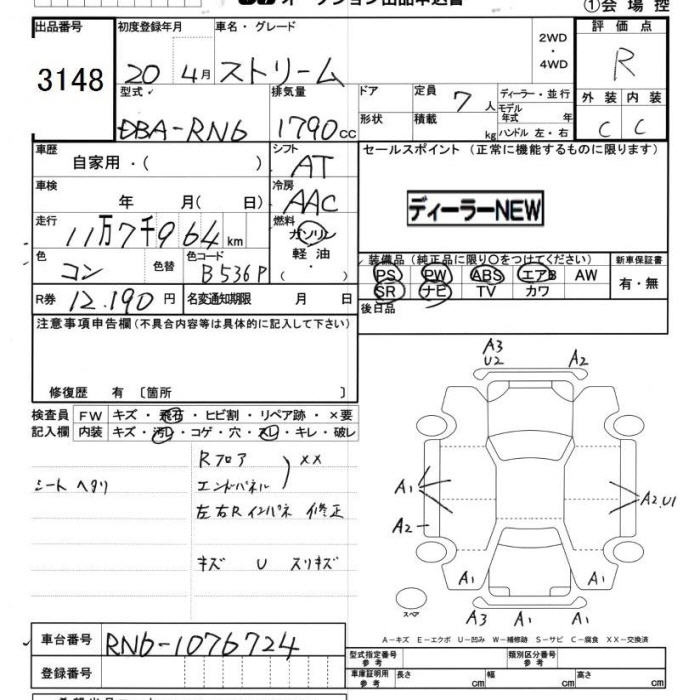 オークション出品申込書
①会場控
出品番号
3148
初度登録年月
20 4月
車名・グレード
ストリーム
2WD
・
4WD
評価点
R
型式
DBA-RN6
排気量
1790 CC
ドア
定員
7人
ディーラー・並行
モデル
年式 年
形状
積載
kg
ハンドル 左・右
外装
内装
C
C
車歴
自家用・( )
シフト
AT
セールスポイント (正常に機能するものに限ります)
ディーラーNEW
車検
年 月( 日)
冷房
AAC
走行
11万7千964 km
燃料
ガソリン
軽油
・
( )
色
コン
色替
色コード
B536P
装備品 (純正品に限り○をつけてください)
PS PW ABS エアB AW
SR ナビ TV カワ
新車保証書
有・無
R券
12,190 円
名変通知期限 月 日
後日品
注意事項申告欄 (不具合内容等は具体的に記入して下さい)
修復歴 有 〔箇所 〕
検査員
記入欄
FW
キズ・飛石・ヒビ割・リペア跡・×要
内装
キズ・汚レ・コゲ・穴・スレ・キレ・破レ
シート ヘタリ
Rフロア
エンドパネル
××
左右Rインパネ 修正
キズ U スリキズ
A3
U2
A2
A1
A2
A2.U1
A1
A1
A3
A1
A1
スペア
A-キズ E-エクボ U-凹み W-補修跡 S-サビ C-腐食 XX-交換済
車台番号
RN6-1076724
登録番号
型式指定番号
参考
類別区分番号
参考
車庫証明用
参考
長さ cm
幅 cm
高さ cm